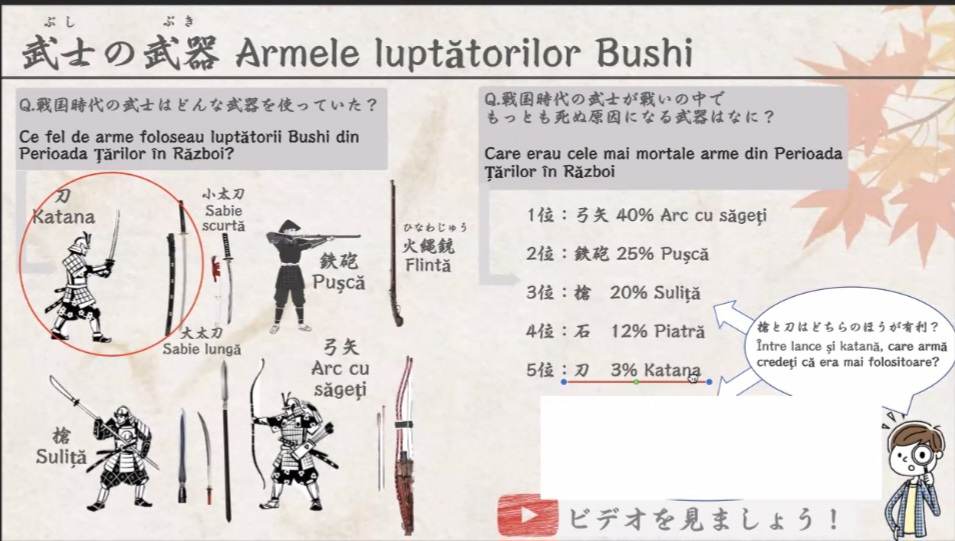 ぶし ぶき
武士の武器 Armele luptătorilor Bushi
Q.戦国時代の武士はどんな武器を使っていた？
Ce fel de arme foloseau luptătorii Bushi din
Perioada Țărilor în Război?
刀
Katana
小太刀
Sabie
scurtă
大太刀
Sabie lungă
鉄砲
Pușcă
ひなわじゅう
火縄銃
Flintă
槍
Suliță
弓矢
Arc cu
săgeți
Q.戦国時代の武士が戦いの中で
もっとも死ぬ原因になる武器はなに？
Care erau cele mai mortale arme din Perioada
Țărilor în Război
1位：弓矢 40% Arc cu săgeți
2位：鉄砲 25% Pușcă
3位：槍 20% Suliță
4位：石 12% Piatră
5位：刀 3% Katana
槍と刀はどちらのほうが有利？
Între lance și katană, care armă
credeți că era mai folositoare?
ビデオを見ましょう！